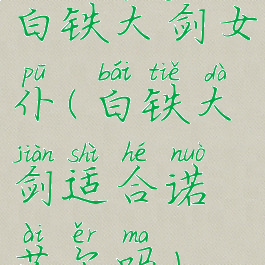 白铁大剑女
pū bái tiě dà
仆(白铁大
jiàn shì hé nuò
剑适合诺
ài ěr ma
艾尔吗)